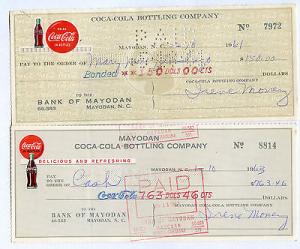 COCA-COLA BOTTLING COMPANY
Coca-Cola
PAID
Nº 7972
MAYODAN, 2 10 1961
PAY TO THE ORDER OF Mary $150.00
Bonded **150 DOLS 00 CTS DOLLARS
COCA-COLA BOTTLING COMPANY
TO THE
BANK OF MAYODAN
66-933
MAYODAN, N. C.
Irene Money
MAYODAN
Coca-Cola
COCA-COLA BOTTLING COMPANY
Nº 8814
DELICIOUS AND REFRESHING
10 1963
PAY TO THE ORDER OF Cash $763.46
PAID
Coca-Cola 763 DOLS 46 CTS DOLLARS
TO THE
BANK OF MAYODAN
MAYODAN, N. C.
Irene Money